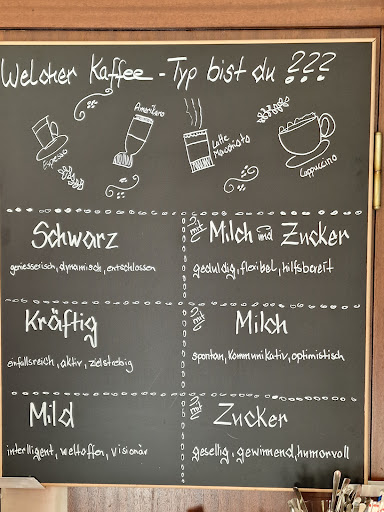 Welcher Kaffee-Typ bist du ???
Espresso
Amerikano
Latte
Macchiato
Cappuccino
Schwarz
geniesserisch, dynamisch, entschlossen
mit Milch und Zucker
geduldig, flexibel, hilfsbereit
Kräftig
einfallsreich, aktiv, zielstrebig
mit Milch
spontan, kommunikativ, optimistisch
Mild
intelligent, weltoffen, visionär
mit Zucker
gesellig, gewinnend, humorvoll